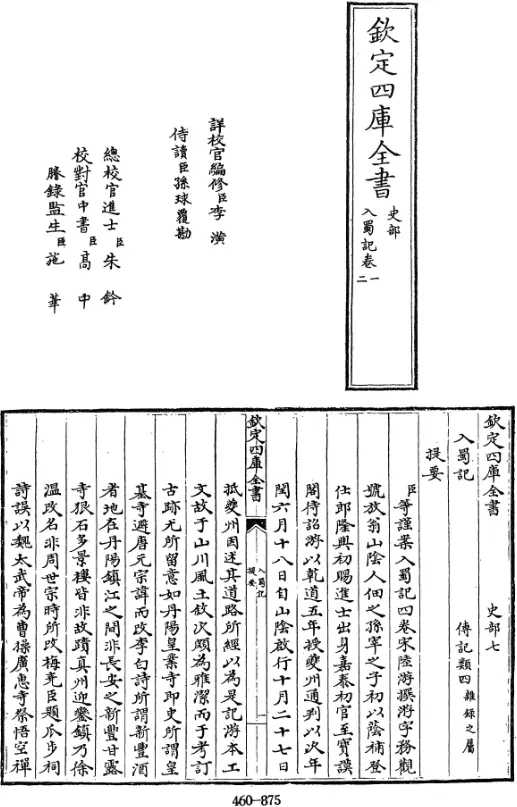 欽定四庫全書
史部
入蜀記卷一
二
詳校官編修臣李潢
侍讀臣孫球覆勘
總校官進士臣朱鈐
校對官中書臣高中
謄錄監生臣施華
欽定四庫全書 史部七
入蜀記 傳記類四雜錄之屬
提要
臣等謹案入蜀記四卷宋陸游撰游字務觀
號放翁山陰人佃之孫宰之子初以蔭補登
仕郎隆興初賜進士出身嘉泰初官至寶謨
閣待詔游以乾道五年授夔州通判以次年
閏六月十八日自山陰啟行十月二十七日
欽定四庫全書
入蜀記
提要
一
抵夔州因述其道路所經以為是記游本工
文故于山川風土敘次頗為雅潔而于考訂
古跡尤所留意如丹陽皇業寺即史所謂皇
基寺避唐元宗諱而改李白詩所謂新豐酒
者地在丹陽鎮江之間非長安之新豐甘露
寺狠石多景樓皆非故蹟真州迎鑾鎮乃徐
溫改名非周世宗時所改梅堯臣題瓜步祠
詩誤以魏太武帝為曹操廣慧寺祭悟空禪
460-875